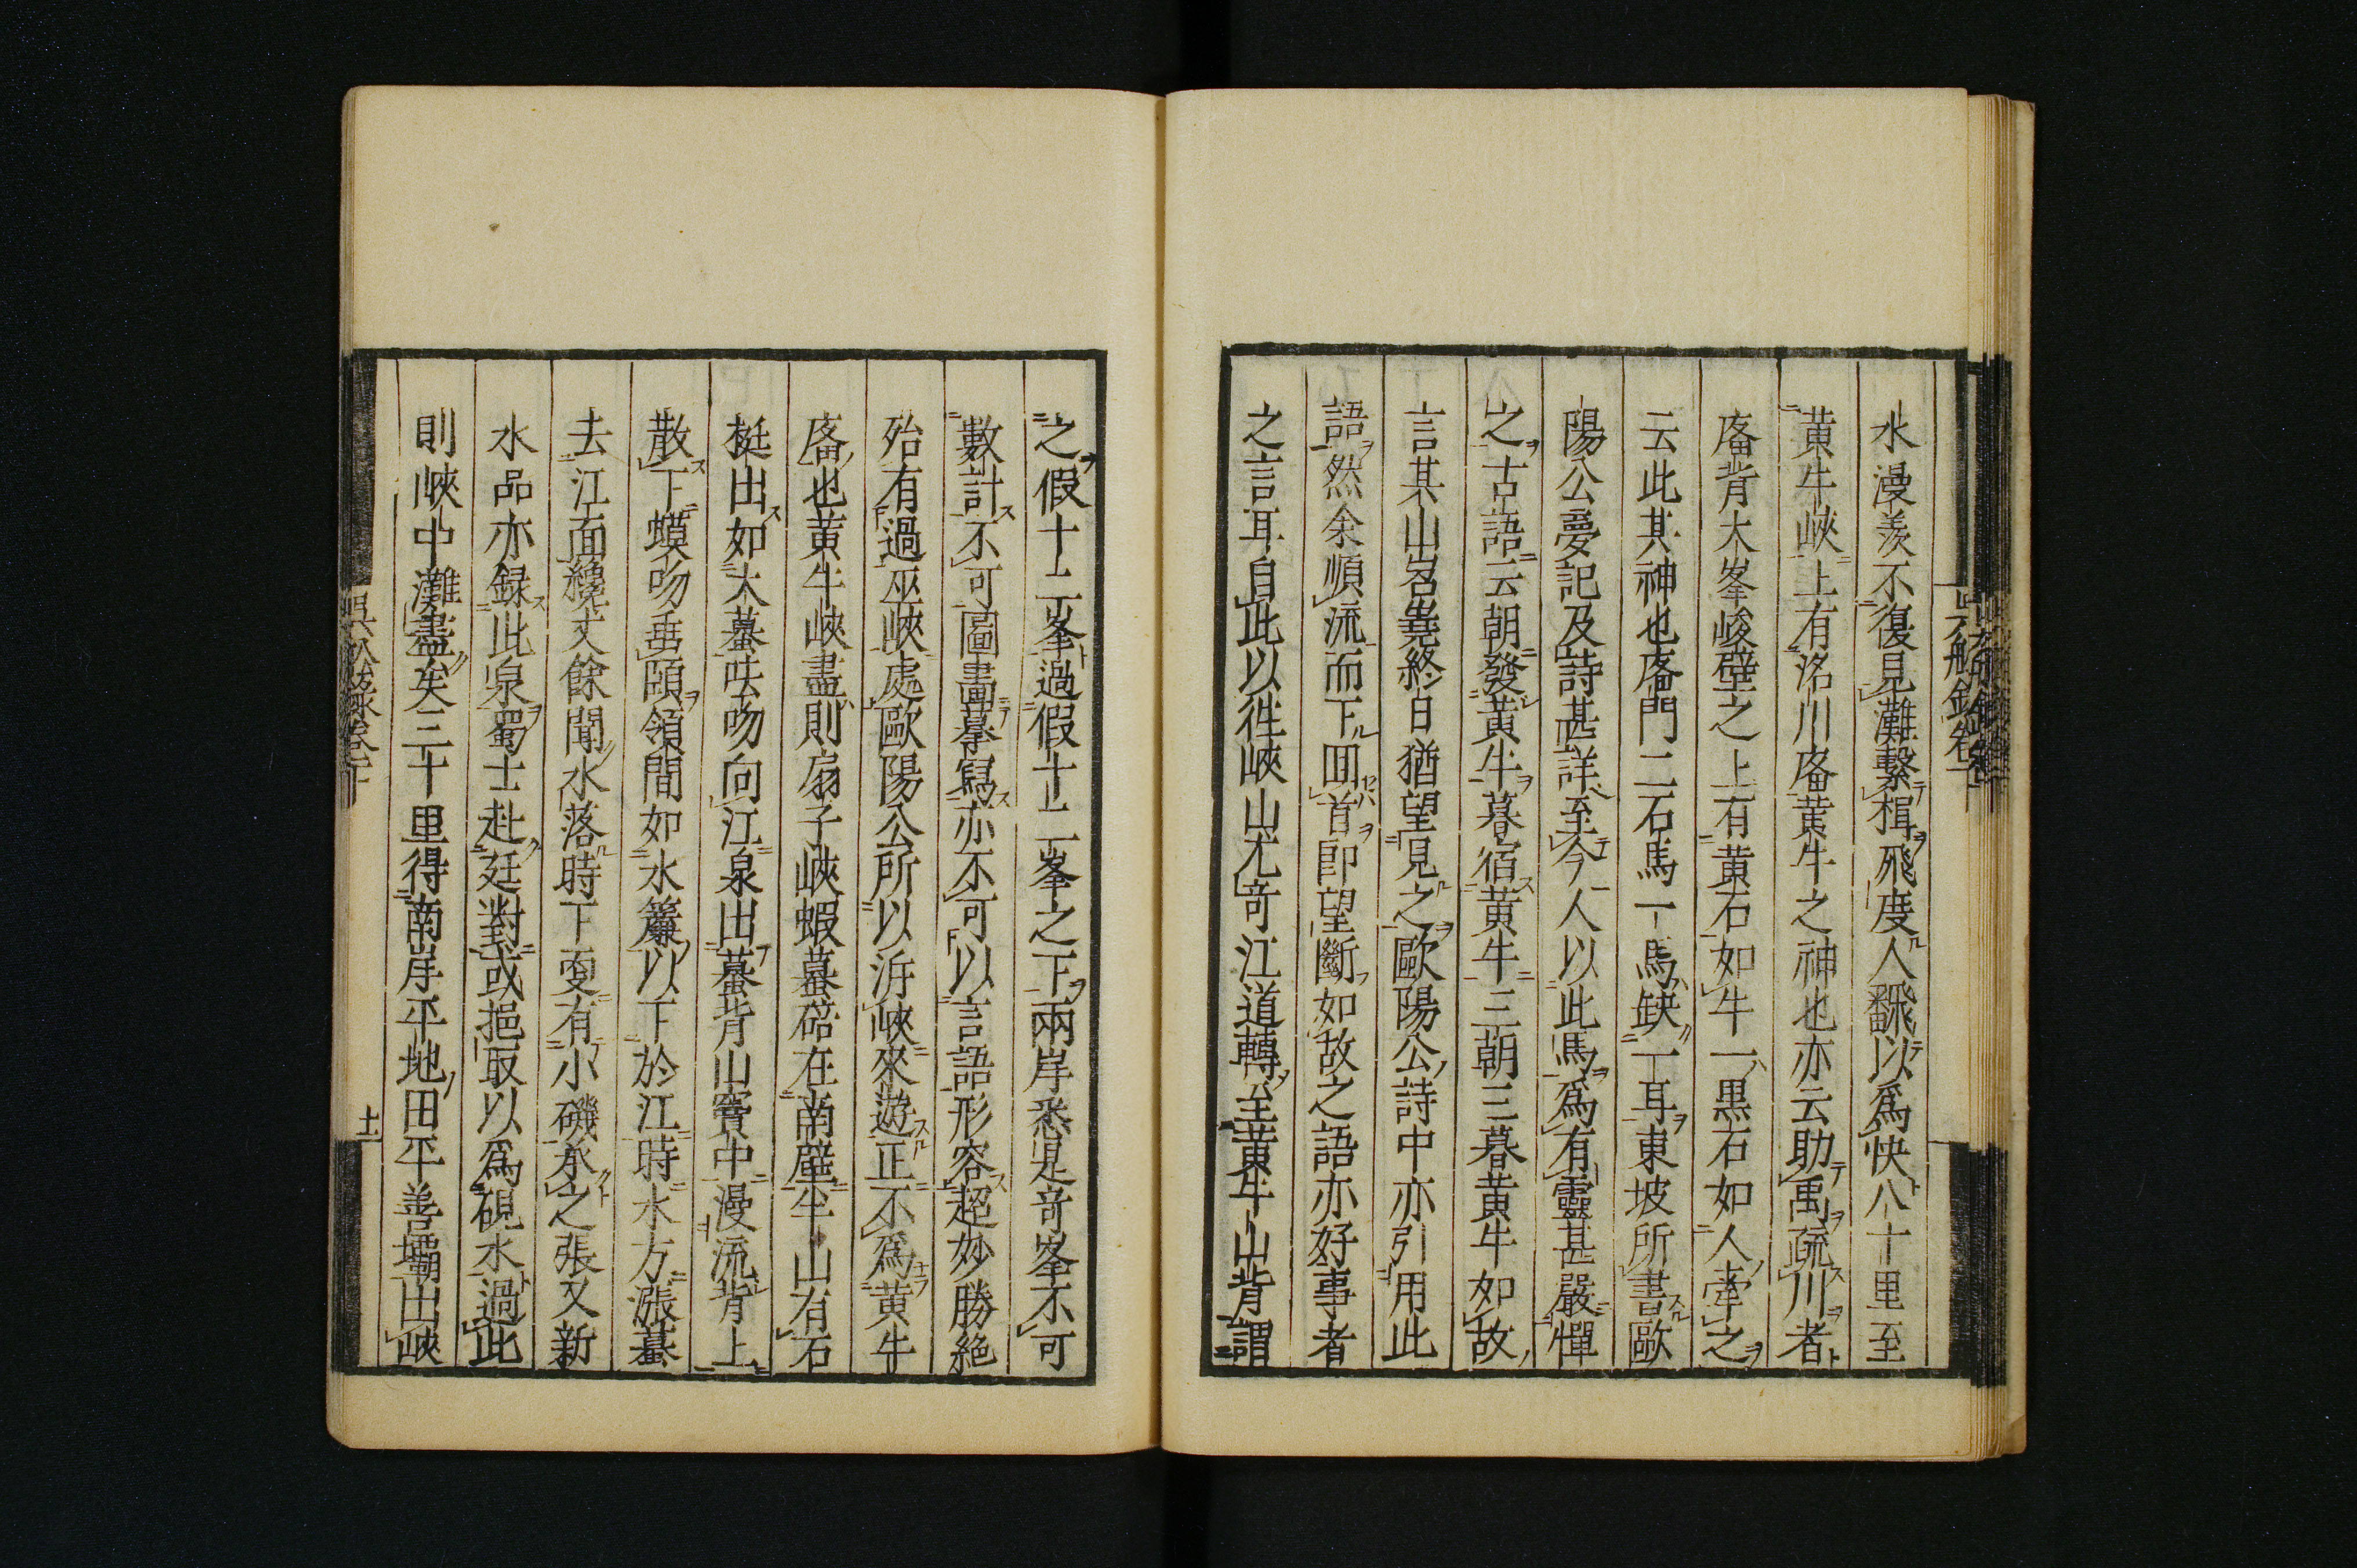 水漫羨不復見灘繋楫飛度人飜以爲快八十里至
黄牛峽上有洺川庙黄牛之神也亦云助禹疏川者
庙背大峯峻壁之上有黄石如牛一黒石如人牽之
云此其神也庙門二石馬一馬缺一耳東坡所書歐
陽公夢記及詩甚詳至今人以此馬爲有靈甚嚴憚
之古語云朝發黄牛暮宿黄牛三朝三暮黄牛如故
言其山岧嶤終日猶望見之歐陽公詩中亦引用此
語然余順流而下囬首卽望斷如故之語亦好事者
之言耳自此以徃峽山尤竒江道轉至黄牛山背謂
之假十二峯過假十二峯之下兩岸悉是竒峯不可
數計不可圖畫摹寫亦不可以言語形容超妙勝絶
殆有過巫峽處歐陽公所以泝峽來遊正不爲黄牛
庙也黄牛峽盡則扇子峽蝦蟇碚在南壁半山有石
挺出如大蟇呿吻向江泉出蟇背山竇中漫流背上
散下蟆吻垂頤頷間如水簾以下於江時水方漲蟇
去江面纔丈餘聞水落時下更有小磯承之張又新
水品亦録此泉蜀士赴廷對或挹取以爲硯水過此
則峽中灘盡矣三十里得南岸平地田平善壩出峽
吳舩録卷下
十一